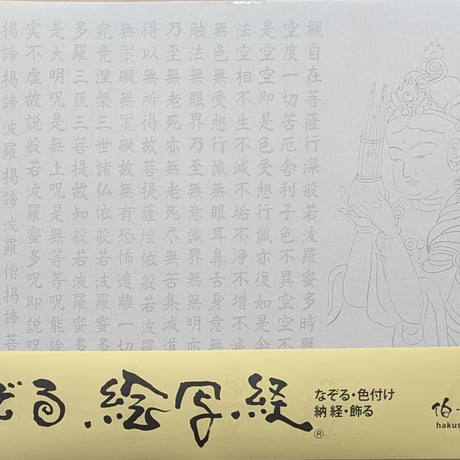 観自在菩薩行深般若波羅蜜多時照
空度一切苦厄舎利子色不異空空不
是空空即是色受想行識亦復如是舎
法空相不生不滅不垢不浄不増不
無色無受想行識無眼耳鼻舌身意無
触法無眼界乃至無意識界無無明亦
乃至無老死亦無老死尽無苦集滅道
得以無所得故菩提薩埵依般若波羅
無罣礙無罣礙故無有恐怖遠離一切
究竟涅槃三世諸仏依般若波羅蜜多
多羅三藐三菩提故知般若波羅蜜多
是大明呪是無上呪是無等等呪能除
実不虚故説般若波羅蜜多呪即説呪
掲諦掲諦波羅掲諦波羅僧掲諦菩
ぞる 絵写経®
なぞる・色付け
納経・飾る
伯
hakus